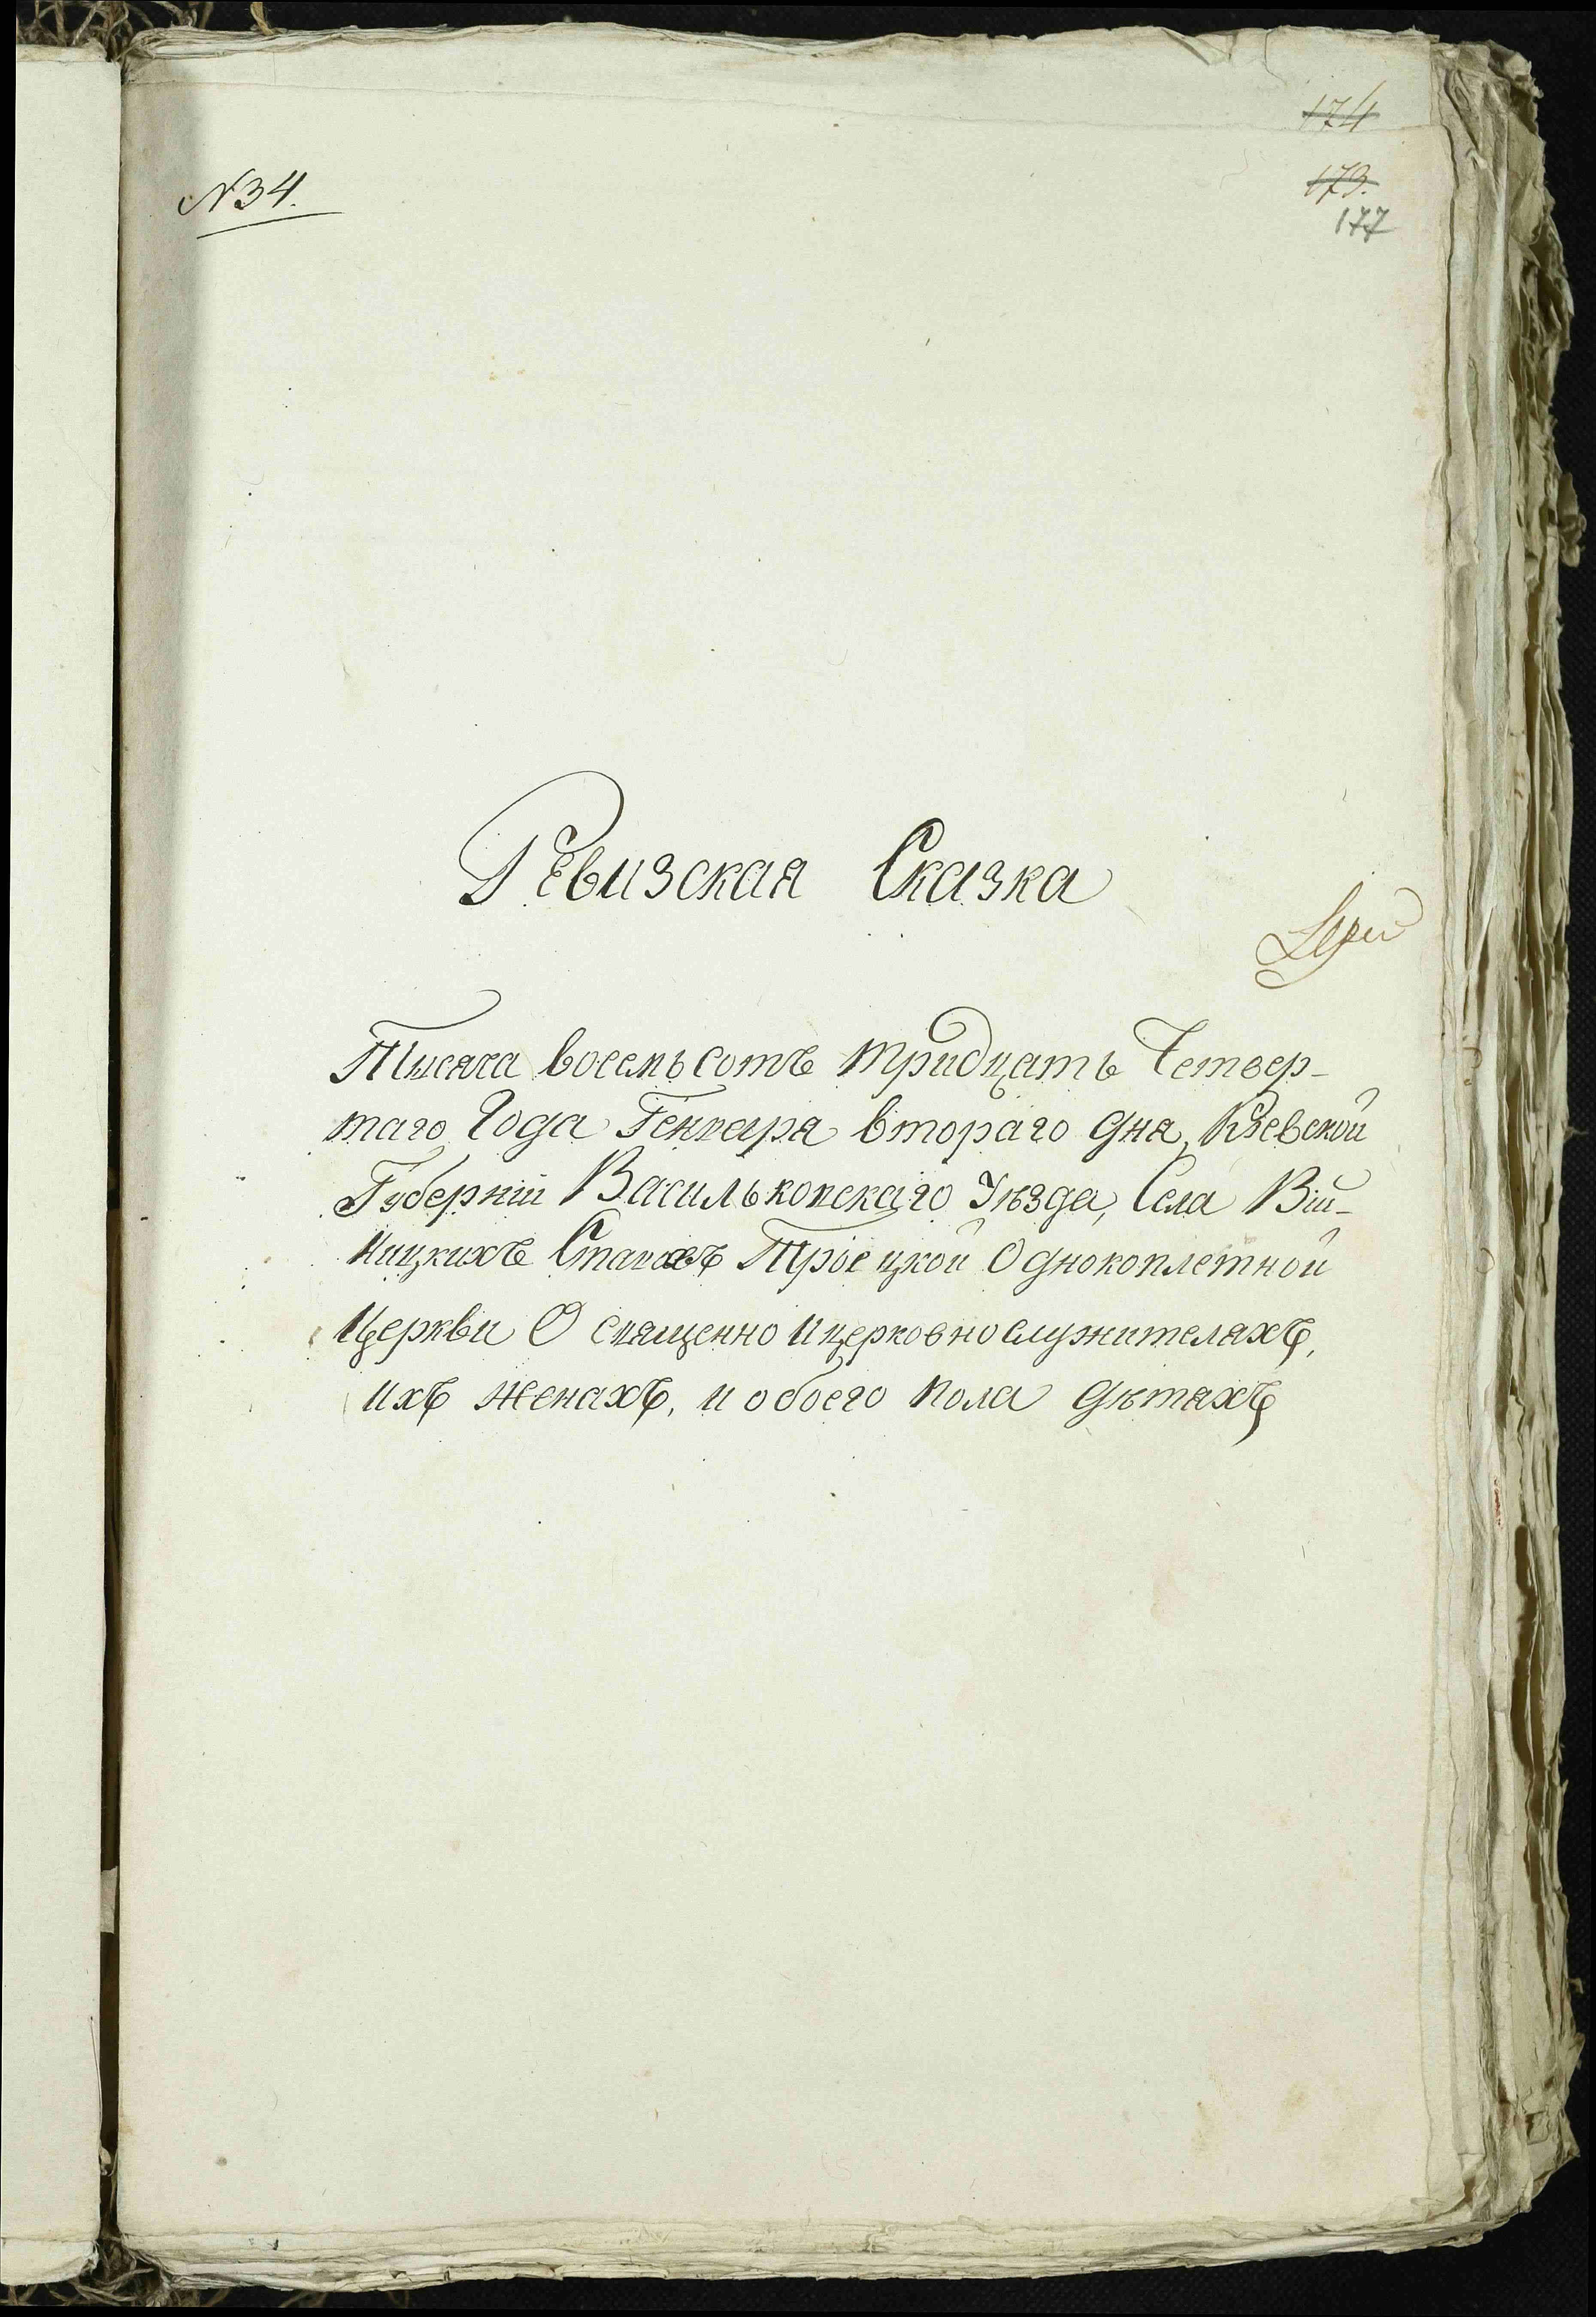 174
N 34.
173.
177
Ревизская Сказка
Тысяча восемьсотъ тридцать Четвер-
таго Года Генваря втораго дня, Кіевской
Губерніи Васильковскаго Уѣзда, Села Вій-
ницкихъ Ставовъ Троецкой Однокоплетной
Церкви О священно и церковнослужителяхъ,
ихъ женахъ, и обоего пола дѣтяхъ